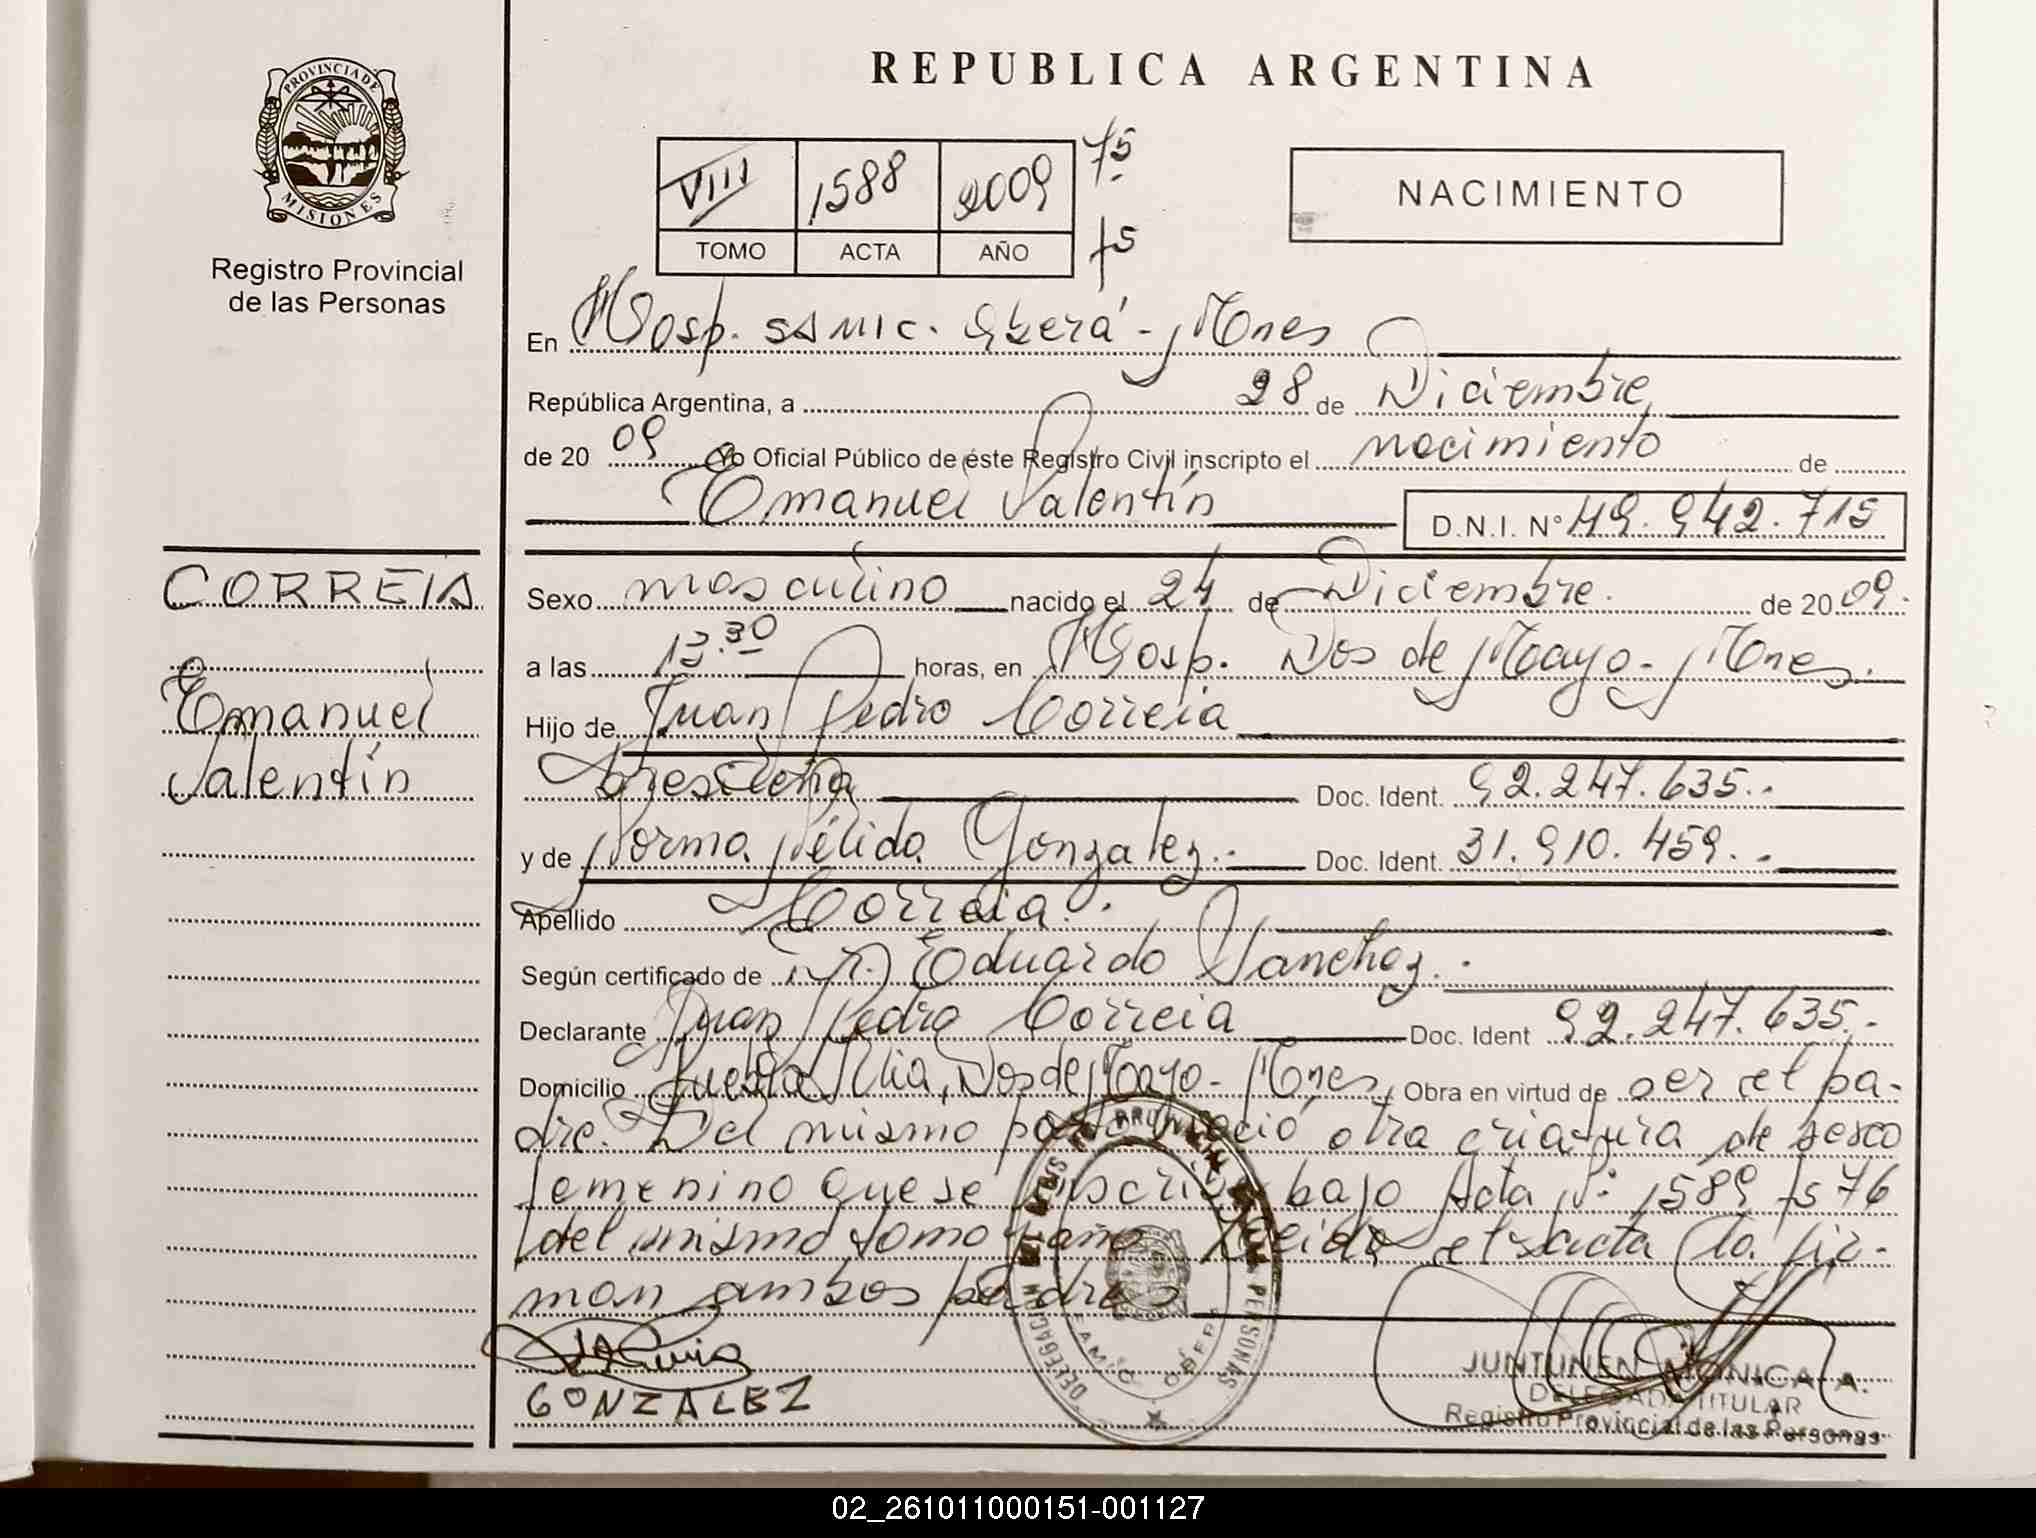 REPUBLICA ARGENTINA
PROVINCIA DE
MISIONES
Registro Provincial
de las Personas
VIII 1588 2009 75
TOMO ACTA AÑO fs
NACIMIENTO
En Hosp. SAMIC. Oberá - Mnes
República Argentina, a 28 de Diciembre
de 20 09 Yo Oficial Público de éste Registro Civil inscripto el nacimiento de
Emanuel Valentín D.N.I. Nº 49.942.715
CORREIA
Sexo masculino nacido el 24 de Diciembre. de 20 09.
a las 13.30 horas, en Hosp. Dos de Mayo - Mnes.
Emanuel
Hijo de Juan Pedro Correia
Valentín
brasileña Doc. Ident. 92.247.635.-
y de Norma Nélida Gonzalez.- Doc. Ident. 31.910.459.-
Apellido Correia.-
Según certificado de Dr. Eduardo Sanchez.-
Declarante Juan Pedro Correia Doc. Ident 92.247.635.-
Domicilio Dos de Mayo - Mnes, Obra en virtud de ser el pa-
dre. Del mismo parto nació otra criatura de sexo
femenino que se inscribe bajo Acta Nº: 1589 fs 76
del mismo tomo y año. Leida el acta la fir-
man ambos padres
GONZALEZ
JUNTUNEN MONICA A.
DELEGADA TITULAR
Registro Provincial de las Personas
02_261011000151-001127